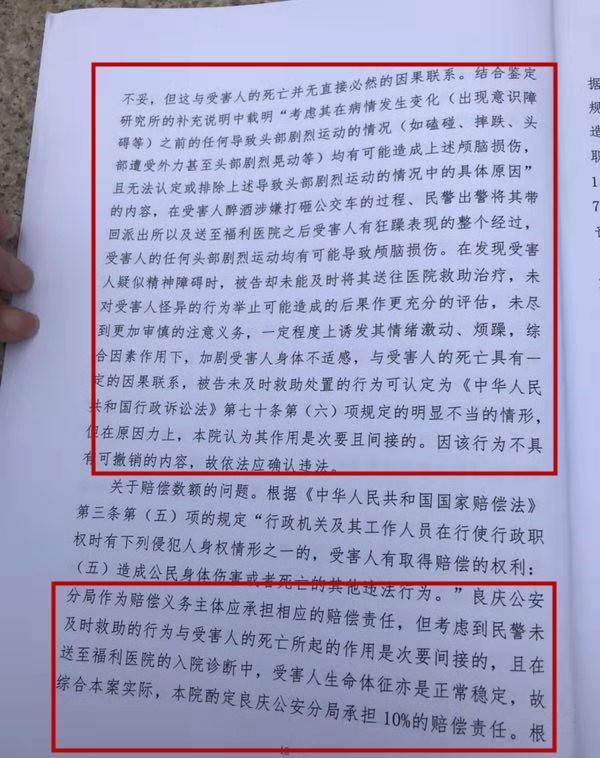 不妥，但这与受害人的死亡并无直接必然的因果联系。结合鉴定
研究所的补充说明中载明“考虑其在病情发生变化（出现意识障
碍等）之前的任何导致头部剧烈运动的情况（如磕碰、摔跌、头
部遭受外力甚至头部剧烈晃动等）均有可能造成上述颅脑损伤，
且无法认定或排除上述导致头部剧烈运动的情况中的具体原因”
的内容，在受害人醉酒涉嫌打砸公交车的过程、民警出警将其带
回派出所以及送至福利医院之后受害人有狂躁表现的整个经过，
受害人的任何头部剧烈运动均有可能导致颅脑损伤。在发现受害
人疑似精神障碍时，被告却未能及时将其送往医院救助治疗，未
对受害人怪异的行为举止可能造成的后果作更充分的评估，未尽
到更加审慎的注意义务，一定程度上诱发其情绪激动、烦躁，综
合因素作用下，加剧受害人身体不适感，与受害人的死亡具有一
定的因果联系，被告未及时救助处置的行为可认定为《中华人民
共和国行政诉讼法》第七十条第（六）项规定的明显不当的情形，
但在原因力上，本院认为其作用是次要且间接的。因该行为不具
有可撤销的内容，故依法应确认违法。
关于赔偿数额的问题。根据《中华人民共和国国家赔偿法》
第三条第（五）项的规定“行政机关及其工作人员在行使行政职
权时有下列侵犯人身权情形之一的，受害人有取得赔偿的权利：
（五）造成公民身体伤害或者死亡的其他违法行为。”良庆公安
分局作为赔偿义务主体应承担相应的赔偿责任，但考虑到民警未
及时救助的行为与受害人的死亡所起的作用是次要间接的，且在
送至福利医院的入院诊断中，受害人生命体征亦是正常稳定，故
综合本案实际，本院酌定良庆公安分局承担10%的赔偿责任。根
据
规
职
1
7